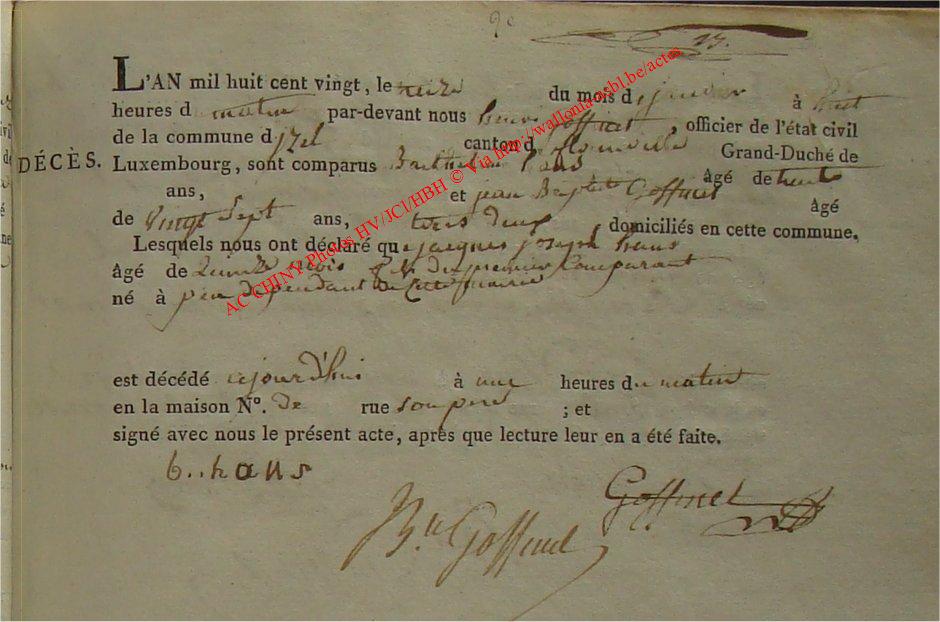 2e
23.
L'AN mil huit cent vingt, le du mois d janvier à huit
heures d matin par-devant nous henri Goffinet officier de l'état civil
de la commune d izel canton d florenville Grand-Duché de
DÉCÈS. Luxembourg, sont comparus hans âgé de trente
ans, et jean Baptiste Goffinet âgé
de vingt Sept ans, tous deux domiciliés en cette commune,
Lesquels nous ont déclaré que jacques joseph hans
âgé de mois fils du premier Comparant
né à pin dependant de Cette mairie
est décédé cejourd'hui à une heures du matin
en la maison N°. de rue son pere ; et
signé avec nous le présent acte, après que lecture leur en a été faite.
b.. hans
Goffinet
B.te Goffinet
AC CHINY Photos HV/JCl/HBH © Via http://wallonia-asbl.be/actes